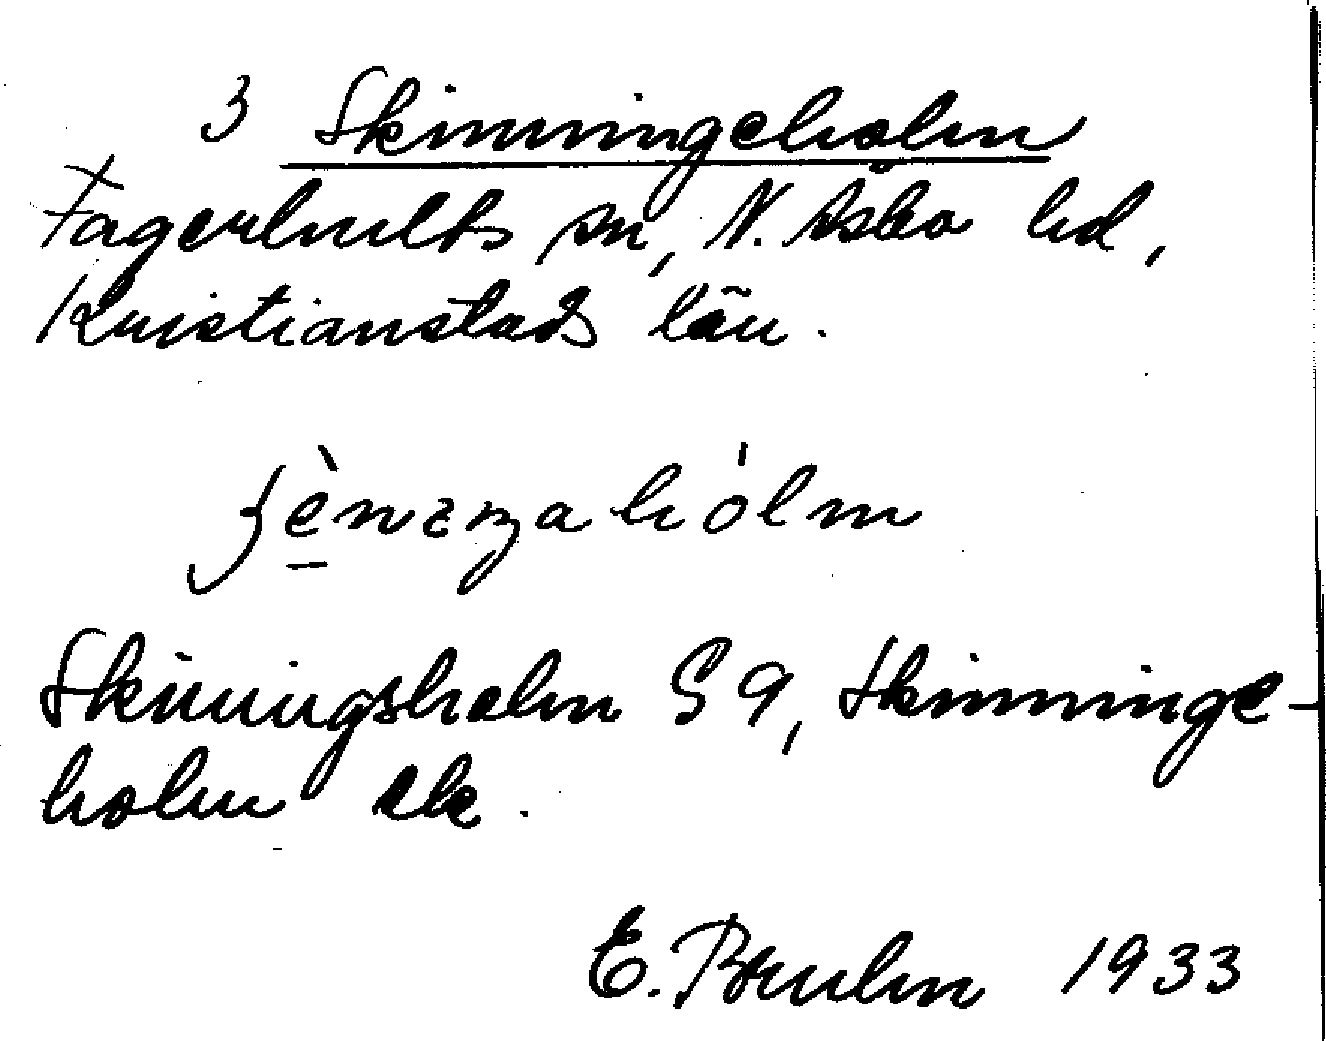 3 Skinningeholm
Fagerhults sn, N. Åsbo hd,
Kristianstads län.
Skinningsholm G 9, Skinninge-
holm ek.
E. Bruhn 1933